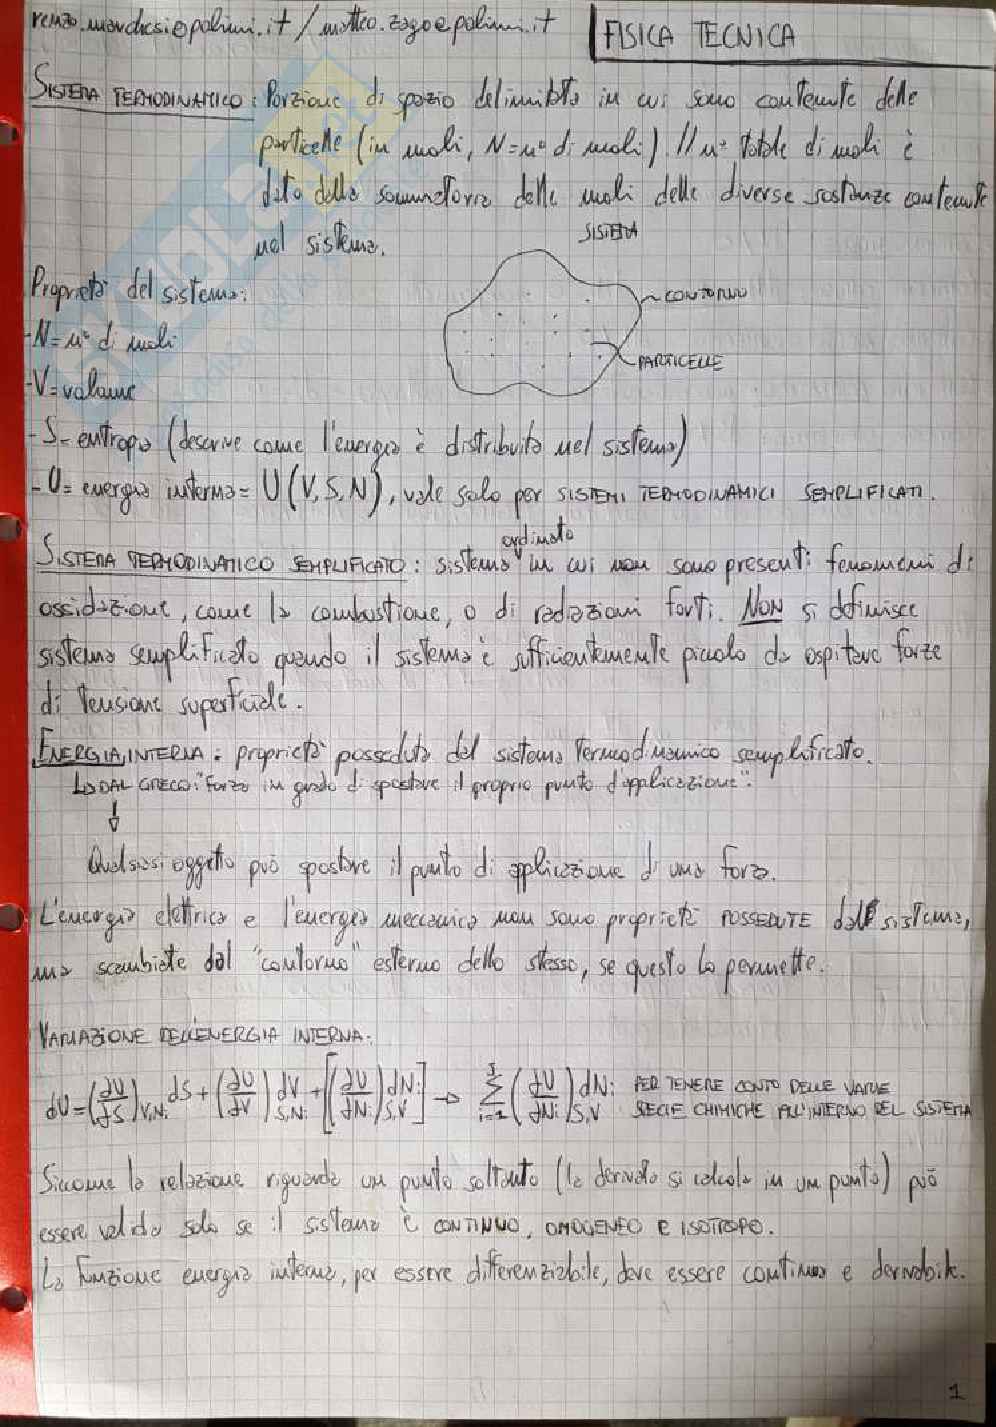 renzo.marchesi@polimi.it / matteo.zago@polimi.it
FISICA TECNICA
SISTEMA TERMODINAMICO: Porzione di spazio delimitata in cui sono contenute delle
particelle (in moli, N=n° di moli). Il n° totale di moli è
dato dalla sommatoria delle moli delle diverse sostanze contenute
nel sistema.
SISTEMA
CONTORNO
PARTICELLE
Proprietà del sistema:
-N=n° di moli
-V=volume
-S=entropia (descrive come l'energia è distribuita nel sistema)
-U=energia interna=U(V,S,N), vale solo per SISTEMI TERMODINAMICI SEMPLIFICATI.
ordinato
SISTEMA TERMODINAMICO SEMPLIFICATO: sistema in cui non sono presenti fenomeni di
ossidazione, come la combustione, o di radiazioni forti. NON si definisce
sistema semplificato quando il sistema è sufficientemente piccolo da ospitare forze
di tensione superficiale.
ENERGIA INTERNA: proprietà posseduta dal sistema termodinamico semplificato.
↳DAL GRECO: "forza in grado di spostare il proprio punto d'applicazione".
↓
Qualsiasi oggetto può spostare il punto di applicazione di una forza.
L'energia elettrica e l'energia meccanica non sono proprietà POSSEDUTE dal sistema,
ma scambiate dal "contorno" esterno dello stesso, se questo lo permette.
VARIAZIONE DELL'ENERGIA INTERNA:
dU=(∂U/∂S)V,Ni dS+(∂U/∂V)S,Ni dV+[(∂U/∂Ni)S,V dNi] → Σ i=1 J (∂U/∂Ni)S,V dNi PER TENERE CONTO DELLE VARIE
SPECIE CHIMICHE ALL'INTERNO DEL SISTEMA
Siccome la relazione riguarda un punto soltanto (la derivata si calcola in un punto) può
essere valida solo se il sistema è CONTINUO, OMOGENEO E ISOTROPO.
La funzione energia interna, per essere differenziabile, deve essere continua e derivabile.
1